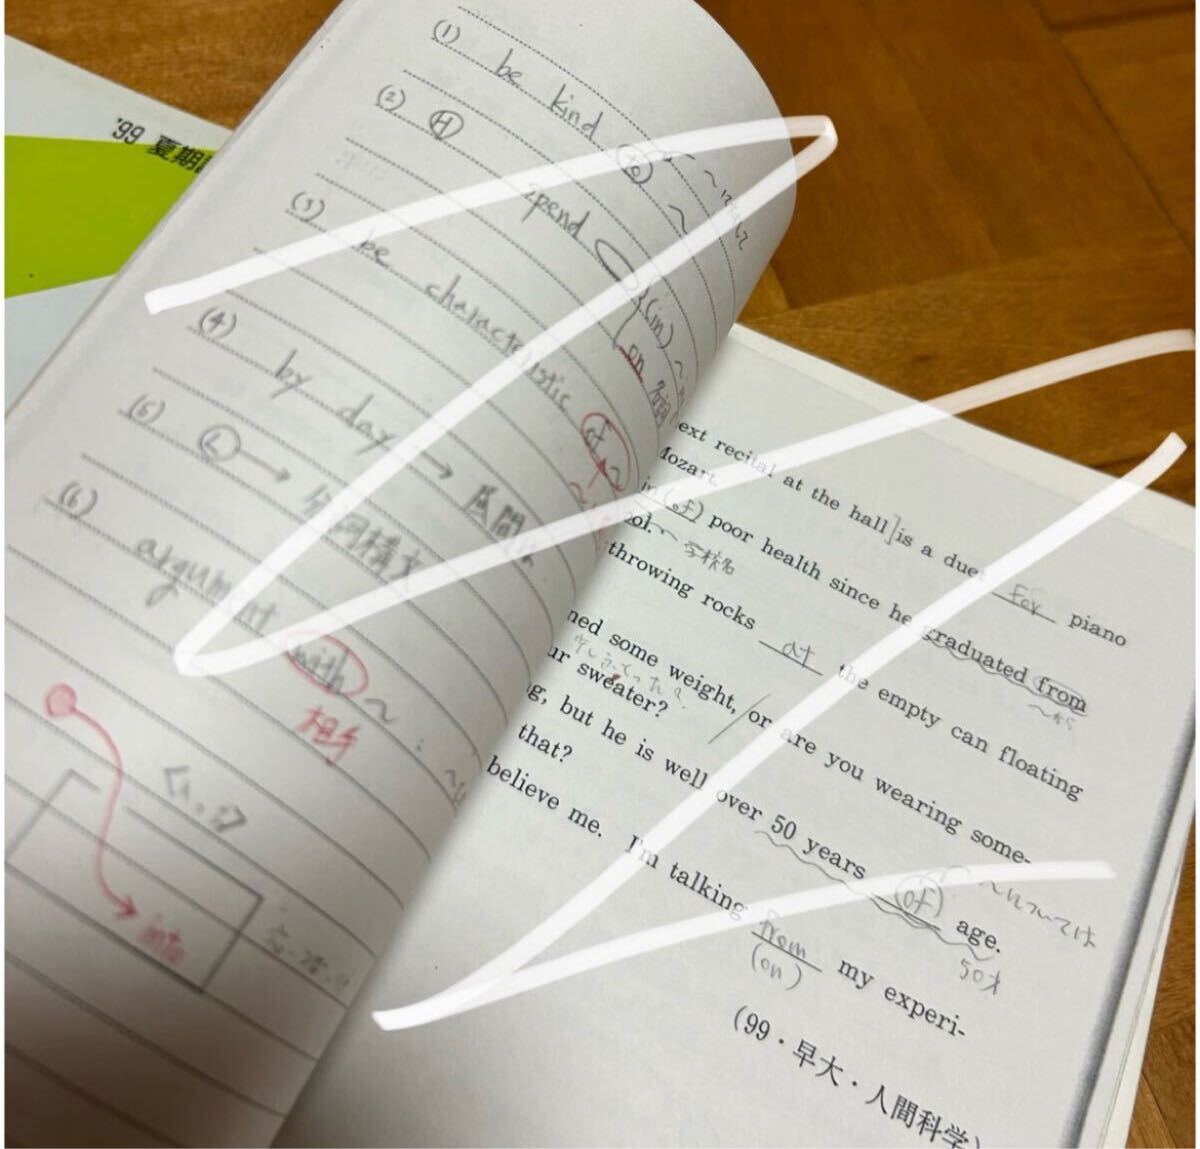 '99 夏期
(1) be kind to ~
(2) H spend
(in) ~
on 名詞
(3) be characteristic of ~
(4) by day → 昼間
(5) L → 分詞構文
(6) argument with ~
相手
into
ext recital at the hall] is a due for piano
Mozart.
in (of) poor health since he graduated from
ol. ~ 学校名 ~から
throwing rocks at the empty can floating
ned some weight, / or are you wearing some-
ur sweater?
g, but he is well over 50 years (of) age.
~については
50才
that?
believe me. I'm talking from my experi-
(on)
(99・早大・人間科学)